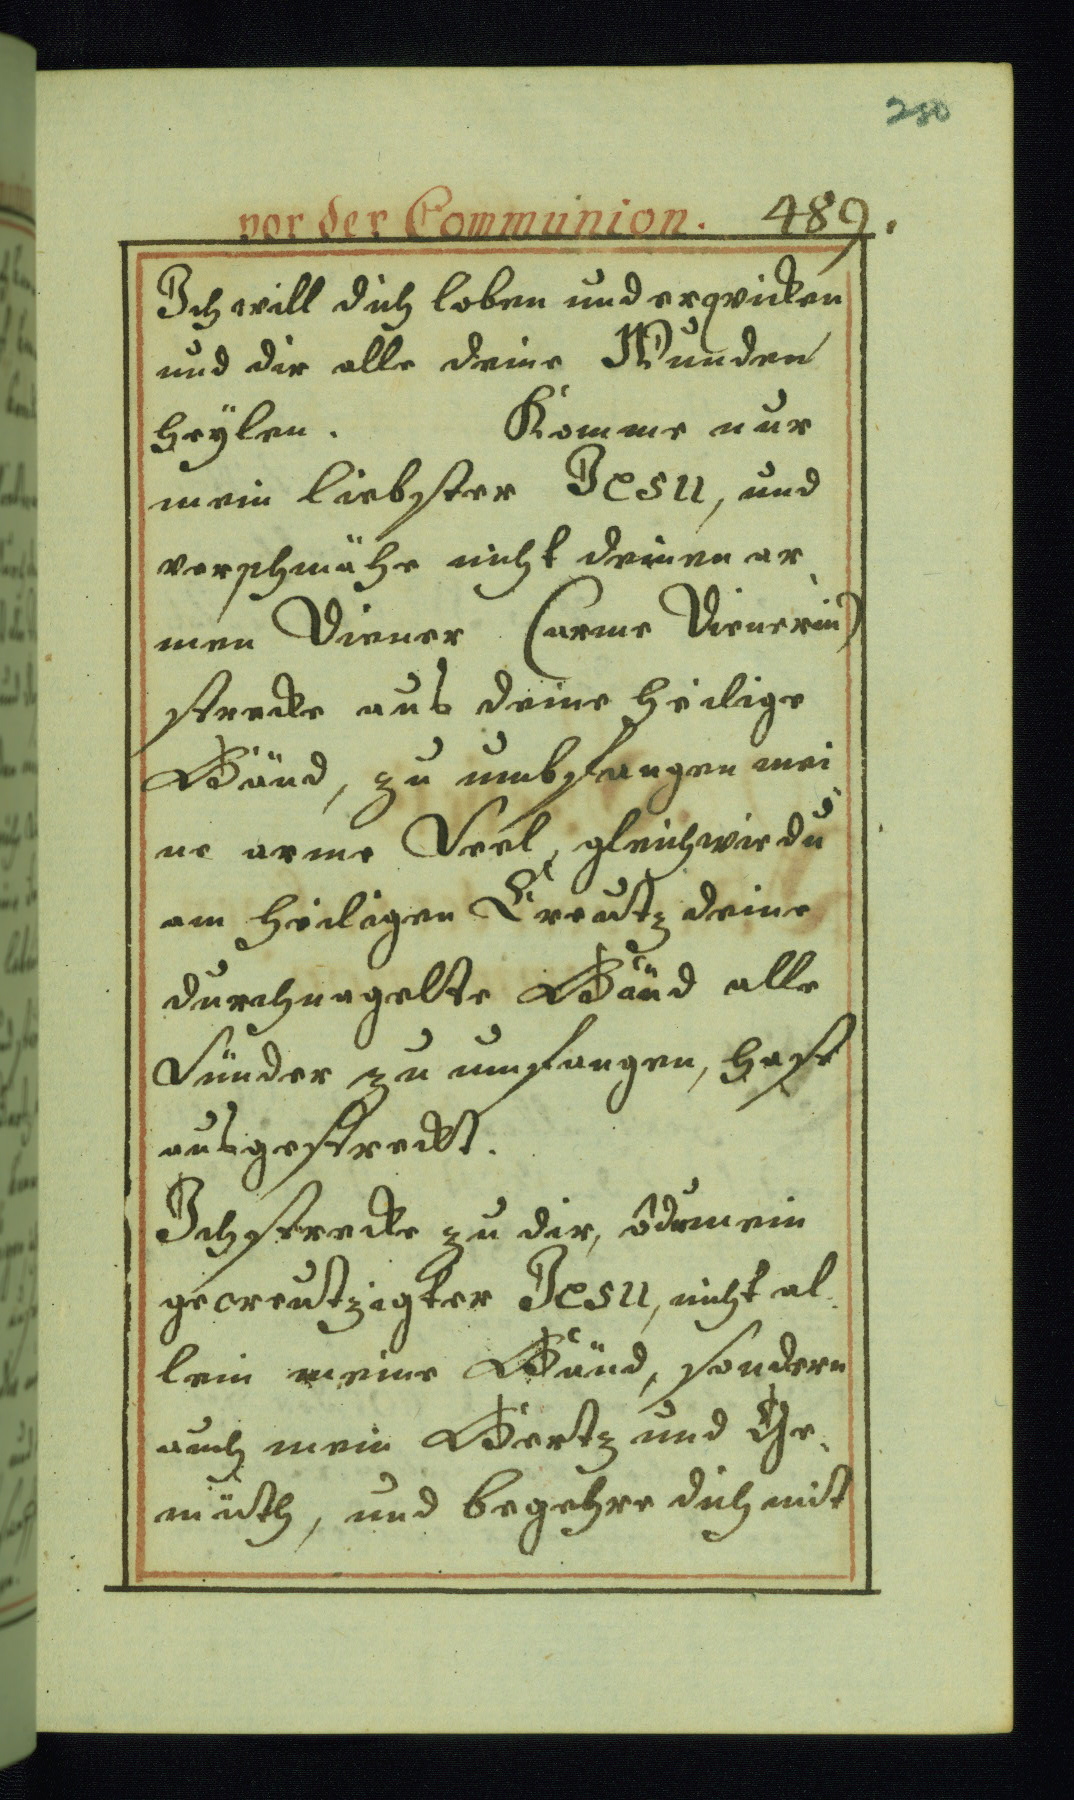 280
vor der Communion. 489.
Ich will dich loben und erqvicken
und dir alle deine Wunden
heÿlen. Komme nur
mein liebster Jesu, und
verschmähe nicht deinen ar
men Diener (arme Dienerin)
strecke aus deine heilige
Händ, zu umbfangen mei
ne arme Seel, gleichwie du
am heiligen Creutz deine
durchnagelte Händ alle
Sünder zu umfangen, hast
ausgestreckt.
Ich strecke zu dir, ô du mein
gecreutzigter Jesu, nicht al-
lein meine Händ, sondern
auch mein Hertz und Ge-
müth, und begehre dich mit